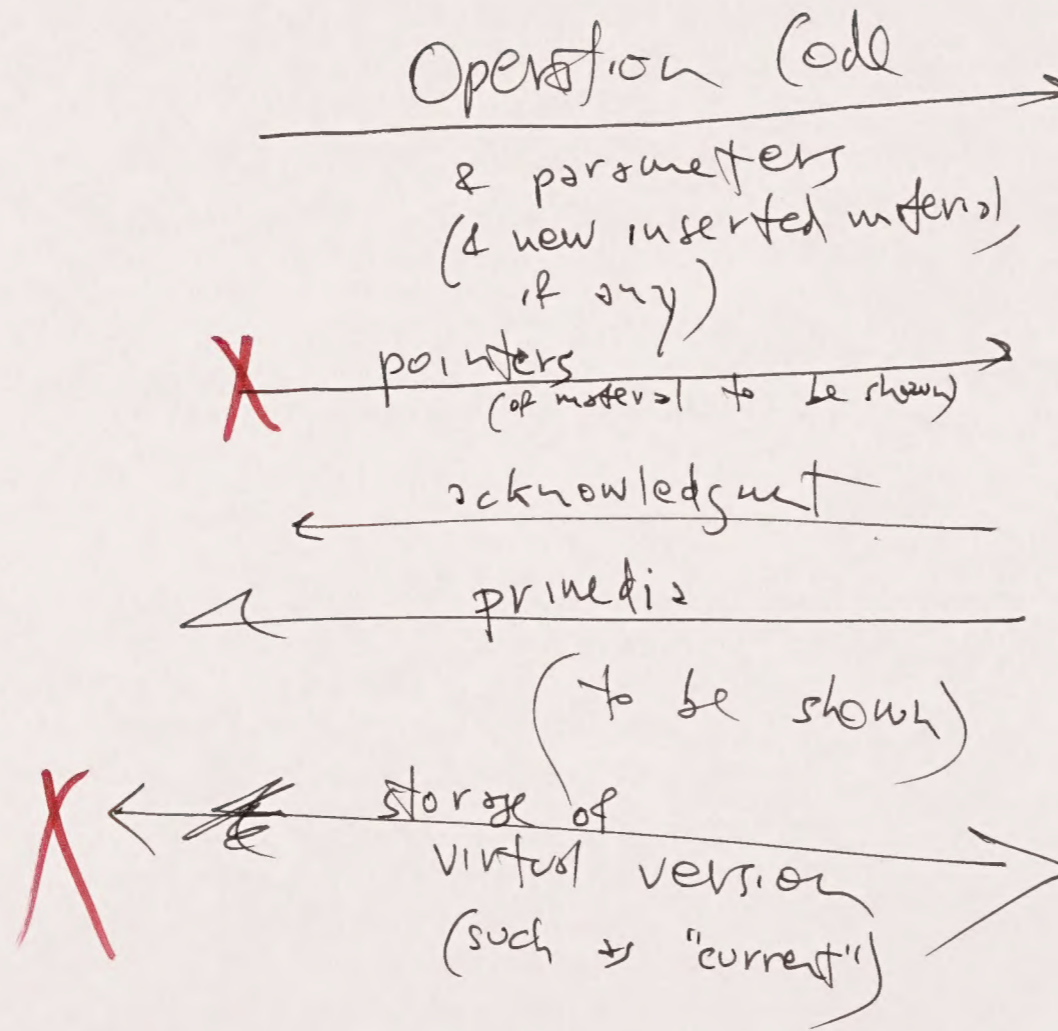 Operation Code
& parameters
(& new inserted material,
if any)
pointers
(of material to be shown)
acknowledgment
primedia
(to be shown)
storage of
virtual version
(such as "current")